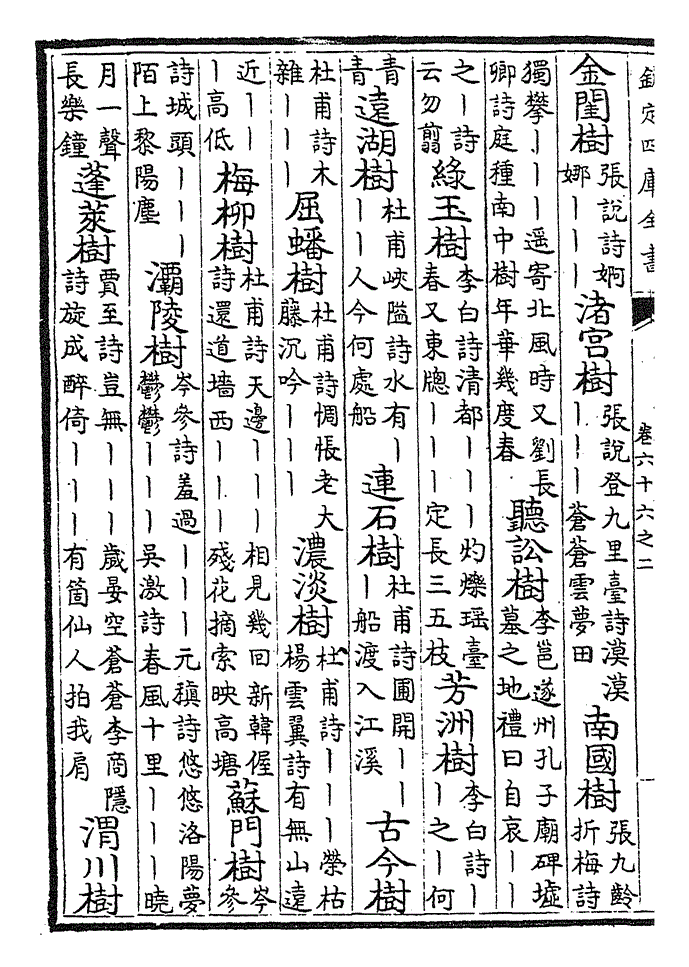 欽定四庫全書
卷六十六之二
金閨樹
張說詩婀
娜丨丨丨
渚宮樹
張說登九里臺詩漠漠
丨丨丨蒼蒼雲夢田
南國樹
張九齡
折梅詩
獨攀丨丨丨遥寄北風時又劉長
卿詩庭種南中樹年華幾度春
聽訟樹
李邕遂州孔子廟碑墟
墓之地禮曰自哀丨丨
之丨詩
云勿翦
緑玉樹
李白詩清都丨丨丨灼爍瑶臺
春又東牕丨丨丨定長三五枝
芳洲樹
李白詩丨
丨之丨何
青
青
遠湖樹
杜甫峽隘詩水有丨
丨丨人今何處船
連石樹
杜甫詩圃開丨丨
丨船渡入江溪
古今樹
杜甫詩木
雜丨丨丨
屈蟠樹
杜甫詩惆悵老大
藤沉吟丨丨丨
濃淡樹
杜甫詩丨丨丨榮枯
楊雲翼詩有無山遠
近丨丨
丨高低
梅柳樹
杜甫詩天邊丨丨丨相見幾回新韓偓
詩還道墻西丨丨丨殘花摘索映高塘
蘇門樹
岑
參
詩城頭丨丨丨
陌上黎陽塵
灞陵樹
岑參詩羞過丨丨丨元稹詩悠悠洛陽夢
鬱鬱丨丨丨吳激詩春風十里丨丨丨曉
月一聲
長樂鐘
蓬萊樹
賈至詩豈無丨丨丨歲晏空蒼蒼李商隱
詩旋成醉倚丨丨丨有箇仙人拍我肩
渭川樹